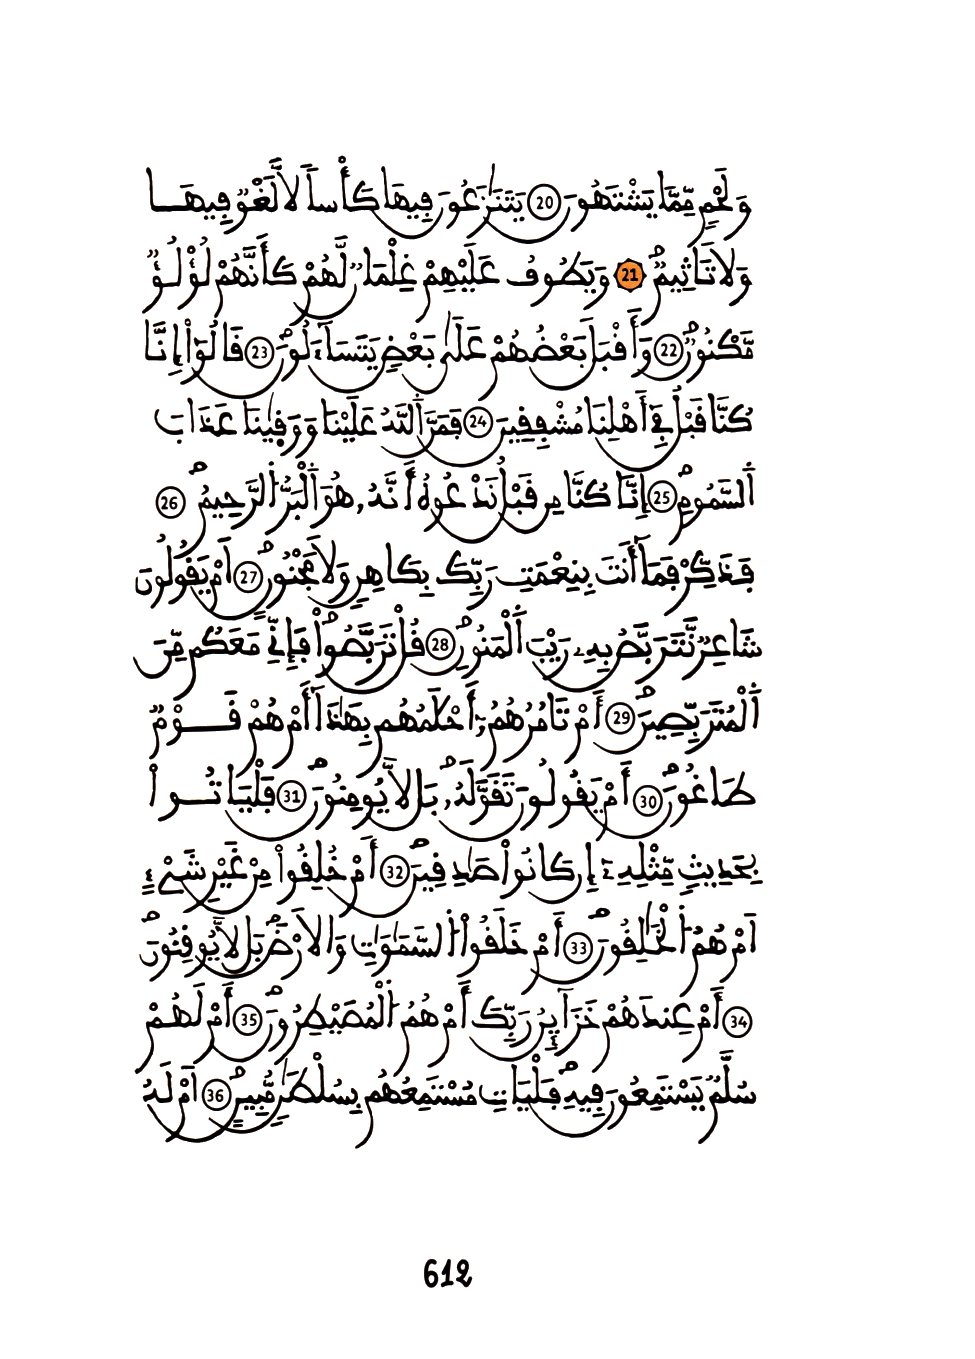 وَلَحْمٖ مِّمَّا يَشْتَهُونَ 20 يَتَنَٰزَعُونَ فِيهَا كَأْساٗ لَّا لَغْوٞ فِيهَا
وَلَا تَاثِيمٞ 21 وَيَطُوفُ عَلَيْهِمْ غِلْمَانٞ لَّهُمْ كَأَنَّهُمْ لُؤْلُؤٞ
مَّكْنُونٞ 22 وَأَقْبَلَ بَعْضُهُمْ عَلَىٰ بَعْضٖ يَتَسَآءَلُونَ 23 قَالُوٓاْ إِنَّا
كُنَّا قَبْلُ فِےٓ أَهْلِنَا مُشْفِقِينَ 24 فَمَنَّ اَ۬للَّهُ عَلَيْنَا وَوَقِيٰنَا عَذَابَ
اَ۬لسَّمُومِ 25 إِنَّا كُنَّا مِن قَبْلُ نَدْعُوهُ أَنَّهُۥ هُوَ اَ۬لْبَرُّ اُ۬لرَّحِيمُ 26
فَذَكِّرْ فَمَآ أَنتَ بِنِعْمَتِ رَبِّكَ بِكَاهِنٖ وَلَا مَجْنُونٍ 27 اَمْ يَقُولُونَ
شَاعِرٞ نَّتَرَبَّصُ بِهِۦ رَيْبَ اَ۬لْمَنُونِ 28 قُلْ تَرَبَّصُواْ فَإِنِّے مَعَكُم مِّنَ
اَ۬لْمُتَرَبِّصِينَ 29 أَمْ تَامُرُهُمُۥٓ أَحْلَٰمُهُم بِهَٰذَآ أَمْ هُمْ قَوْمٞ
طَاغُونَ 30 أَمْ يَقُولُونَ تَقَوَّلَهُۥ بَل لَّا يُومِنُونَ 31 فَلْيَاتُواْ
بِحَدِيثٖ مِّثْلِهِۦٓ إِن كَانُواْ صَٰدِقِينَ 32 أَمْ خُلِقُواْ مِنْ غَيْرِ شَےْءٍ
اَمْ هُمُ اُ۬لْخَٰلِقُونَ 33 أَمْ خَلَقُواْ اُ۬لسَّمَٰوَٰتِ وَالَارْضَ بَل لَّا يُوقِنُونَ
34 أَمْ عِندَهُمْ خَزَآئِنُ رَبِّكَ أَمْ هُمُ اُ۬لْمُصَيْطِرُونَ 35 أَمْ لَهُمْ
سُلَّمٞ يَسْتَمِعُونَ فِيهِ فَلْيَاتِ مُسْتَمِعُهُم بِسُلْطَٰنٖ مُّبِينٍ 36 اَمْ لَهُ
612